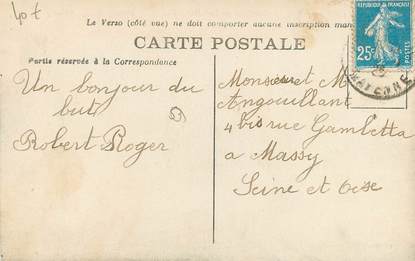 10t
Le Verso (côté vue) ne doit comporter aucune inscription man
CARTE POSTALE
Partie réservée à la Correspondance
Un bonjour du
but
Robert Roger
53
Monsieur et M
Angouillant
4 bis rue Gambetta
a Massy
Seine et Oise
25c
POSTES
MAYENNE